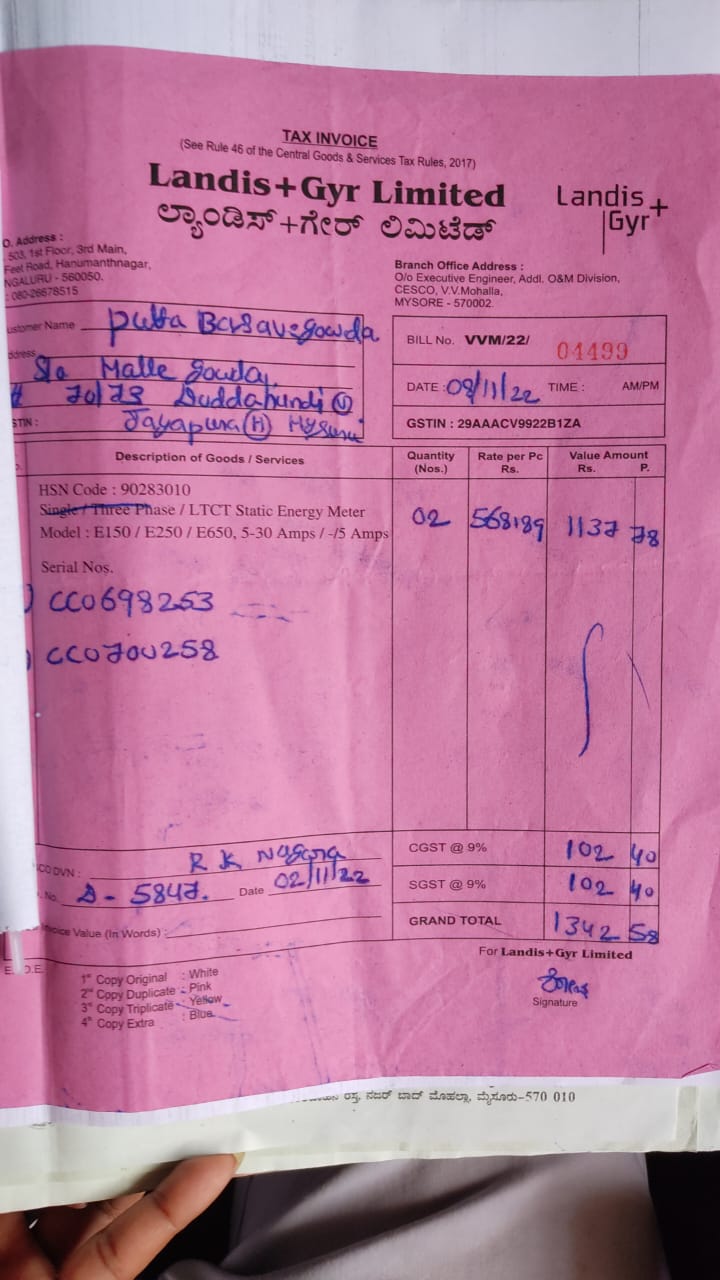 TAX INVOICE
(See Rule 46 of the Central Goods & Services Tax Rules, 2017)
Landis+Gyr Limited
ಲ್ಯಾಂಡಿಸ್+ಗೇರ್ ಲಿಮಿಟೆಡ್
Landis+
Gyr
O. Address :
503, 1st Floor, 3rd Main,
Feet Road, Hanumanthnagar,
NGALURU - 560050.
: 080-26678515
Branch Office Address :
O/o Executive Engineer, Addl. O&M Division,
CESCO, V.V.Mohalla,
MYSORE - 570002.
ustomer Name Putta Basavegowda
ddress S/o Malle Gowda,
# 70/73 Duddahundi (V)
STIN : Jayapura (H) Mysuru
BILL No. VVM/22/ 04499
DATE : 08/11/22 TIME : AM/PM
GSTIN : 29AAACV9922B1ZA
Description of Goods / Services Quantity (Nos.) Rate per Pc Rs. Value Amount Rs. P.
HSN Code : 90283010
Single / Three Phase / LTCT Static Energy Meter
Model : E150 / E250 / E650, 5-30 Amps / -/5 Amps 02 568.89 1137 78
Serial Nos.
) CC0698253
) CC0700258
CO DVN : R K Nagara
. No. D - 5847. Date 02/11/22
Invoice Value (In Words) :
CGST @ 9% 102 40
SGST @ 9% 102 40
GRAND TOTAL 1342 58
For Landis+Gyr Limited
Signature
E. O.E.
1st Copy Original : White
2nd Copy Duplicate : Pink
3rd Copy Triplicate : Yellow
4th Copy Extra : Blue
ರಸ್ತೆ, ನಜರ್ ಬಾದ್ ಮೊಹಲ್ಲಾ, ಮೈಸೂರು-570 010